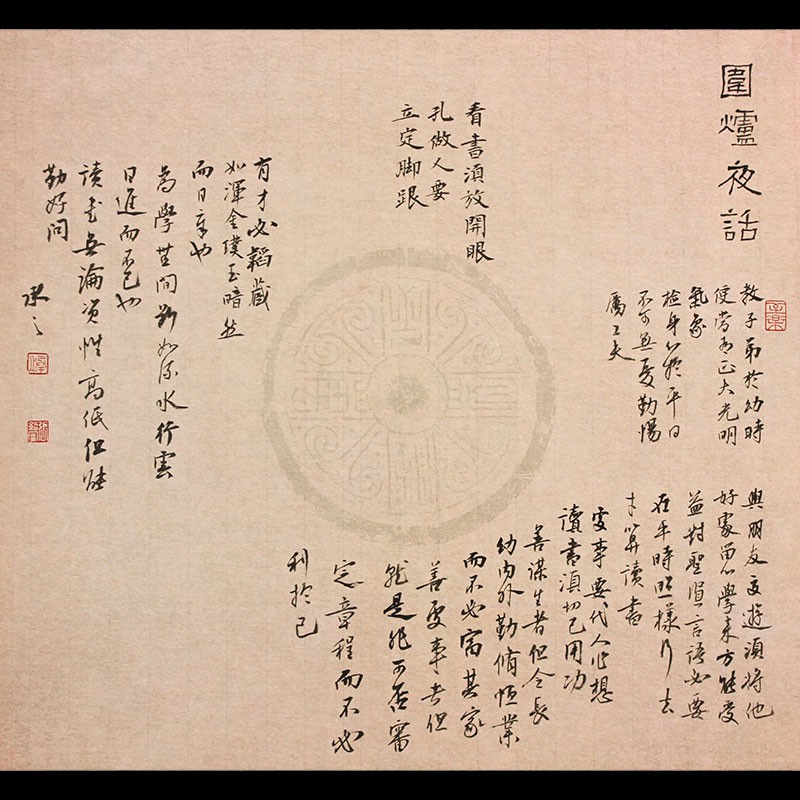 圍爐夜話
教子弟於幼時
便當有正大光明
氣象
檢身心於平日
不可無憂勤惕
厲工夫
與朋友交遊須將他
好處留心學來方能受
益對聖賢言語必要
在平時照樣行去
才算讀書
處事要代人作想
讀書須切己用功
善謀生者但令長
幼內外勤脩恆業
而不必富其家
善處事者但
就是非可否審
定章程而不必
利於己
看書須放開眼
孔做人要
立定脚跟
有才必韜藏
如渾金璞玉暗然
而日章也
為學無間斷如流水行雲
日進而不已也
讀書無論資性高低但能
勤好問
承之